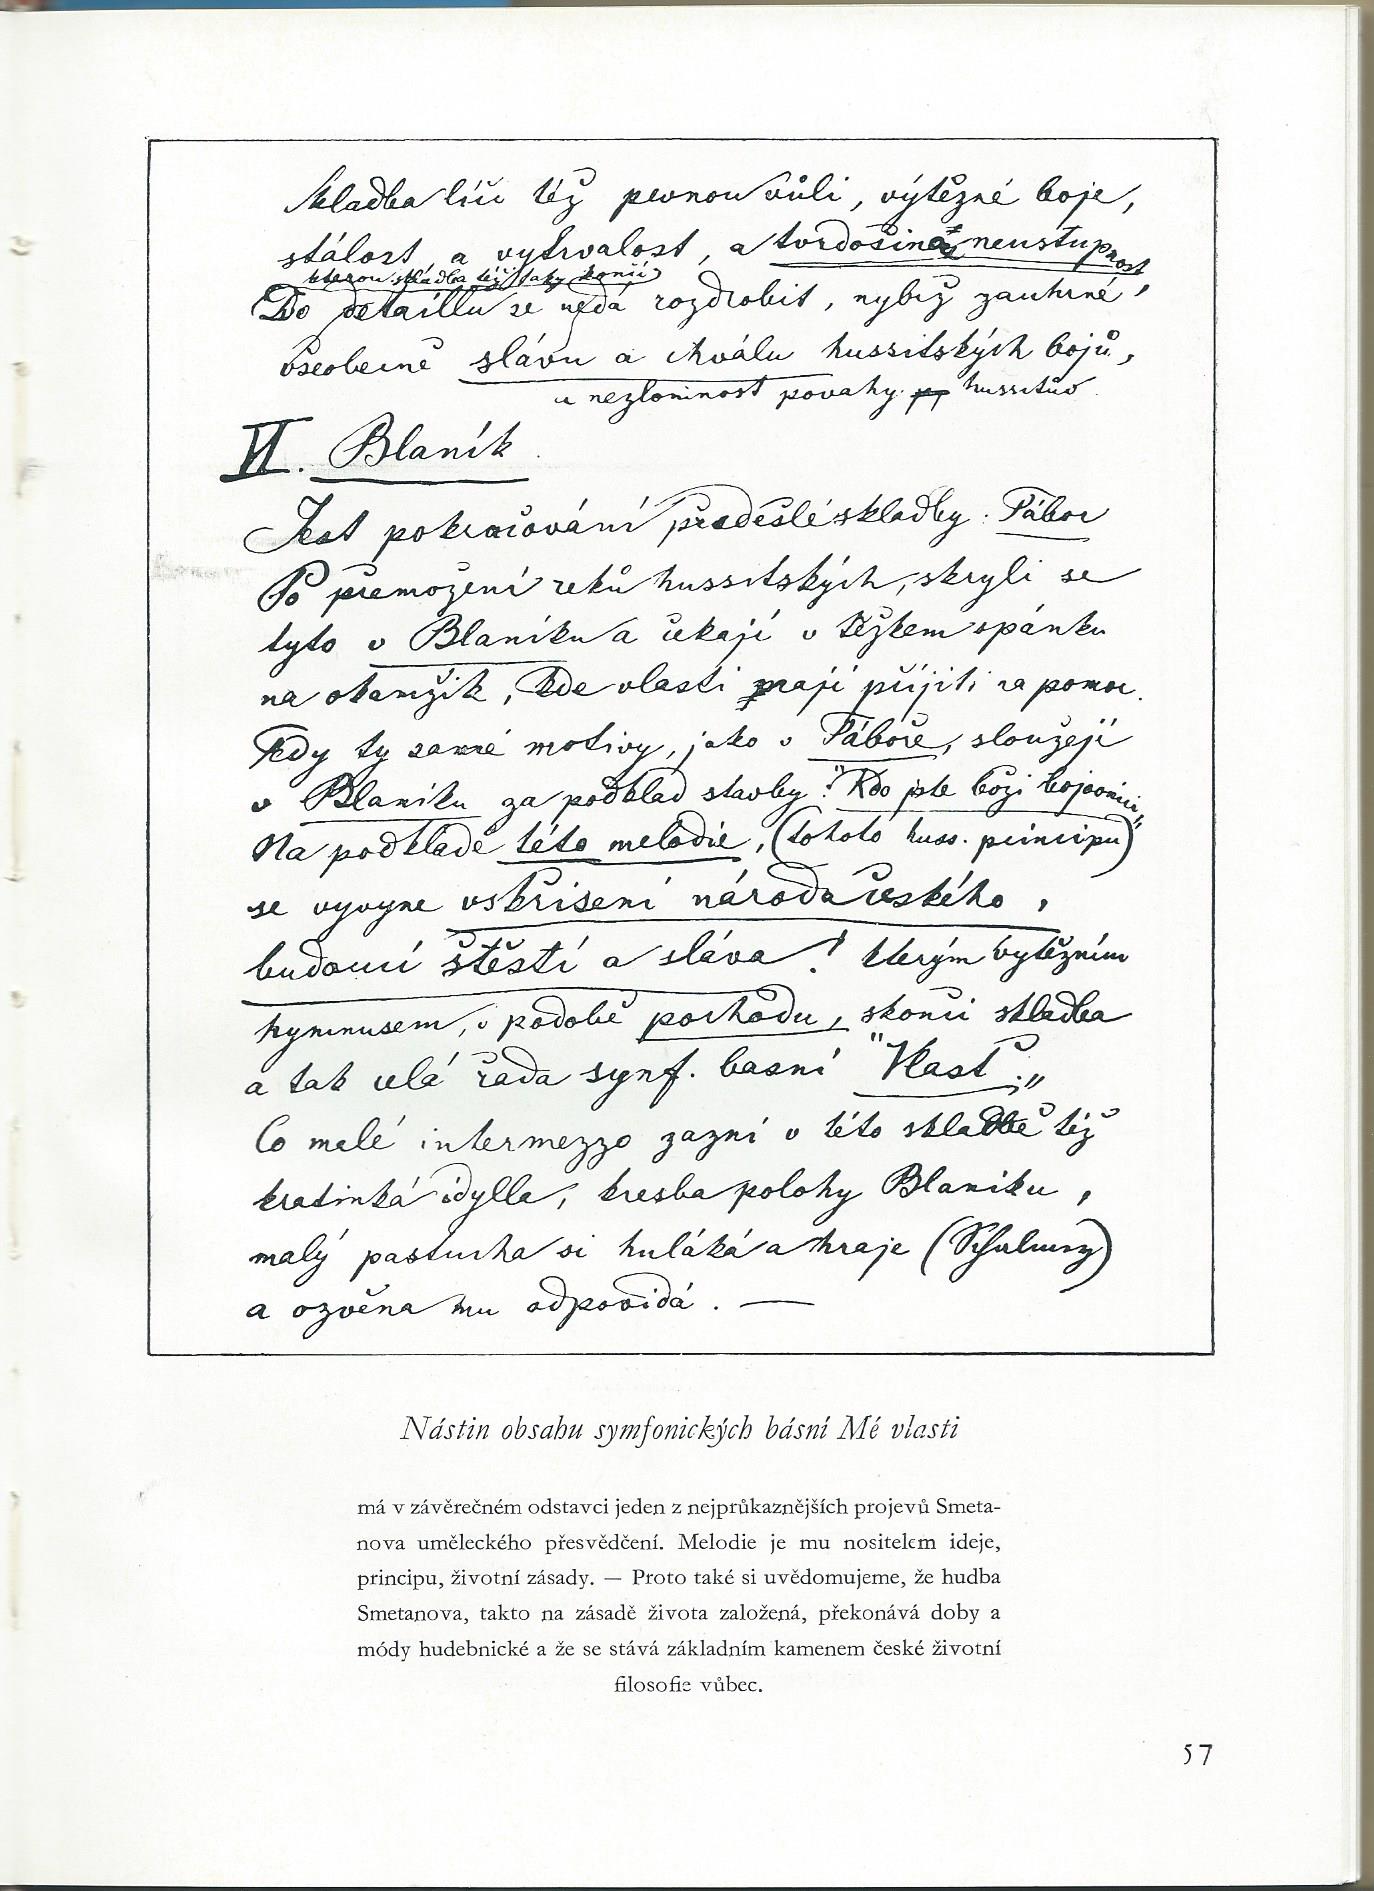 Skladba líčí též pevnou vůli, výtězné boje,
stálost, a vytrvalost, a tvrdošinou neustupnost,
kterou skladba též taky končí
Do detaillu se nedá rozdrobit, nybrž zauhrné
všeobecně slávu a chválu hussitských bojů,
a nezlomnost povahy hussitův.
VI. Blaník
Jest pokračování předešlé skladby: Tábor
Po přemožení reků hussitských, skryli se
tyto v Blaníku a čekají v těžkem spánku
na okamžik, kde vlasti mají přijiti na pomoc.
Tedy ty samé motivy, jako v Táboře, sloužejí
v Blaníku za podklad stavby: "Kdo jste boži bojovnici"
Na podkladě této melodie, (tohoto huss. principu)
se vyvyne vskřisení národa českého,
budoucí štěstí a sláva! kterým vytězním
hymnusem, v podobě pochodu, skonči skladba
a tak celá řada synf. basní "Vlasť."
Co malé intermezzo zazní v této skladbě též
kratinká idylla, kresba polohy Blaniku,
malý pastucha si huláká a hraje (Schalmey)
a ozvěna mu odpovidá. —
Nástin obsahu symfonických básní Mé vlasti
má v závěrečném odstavci jeden z nejprůkaznějších projevů Smeta-
nova uměleckého přesvědčení. Melodie je mu nositelem ideje,
principu, životní zásady. — Proto také si uvědomujeme, že hudba
Smetanova, takto na zásadě života založená, překonává doby a
módy hudebnické a že se stává základním kamenem české životní
filosofie vůbec.
57